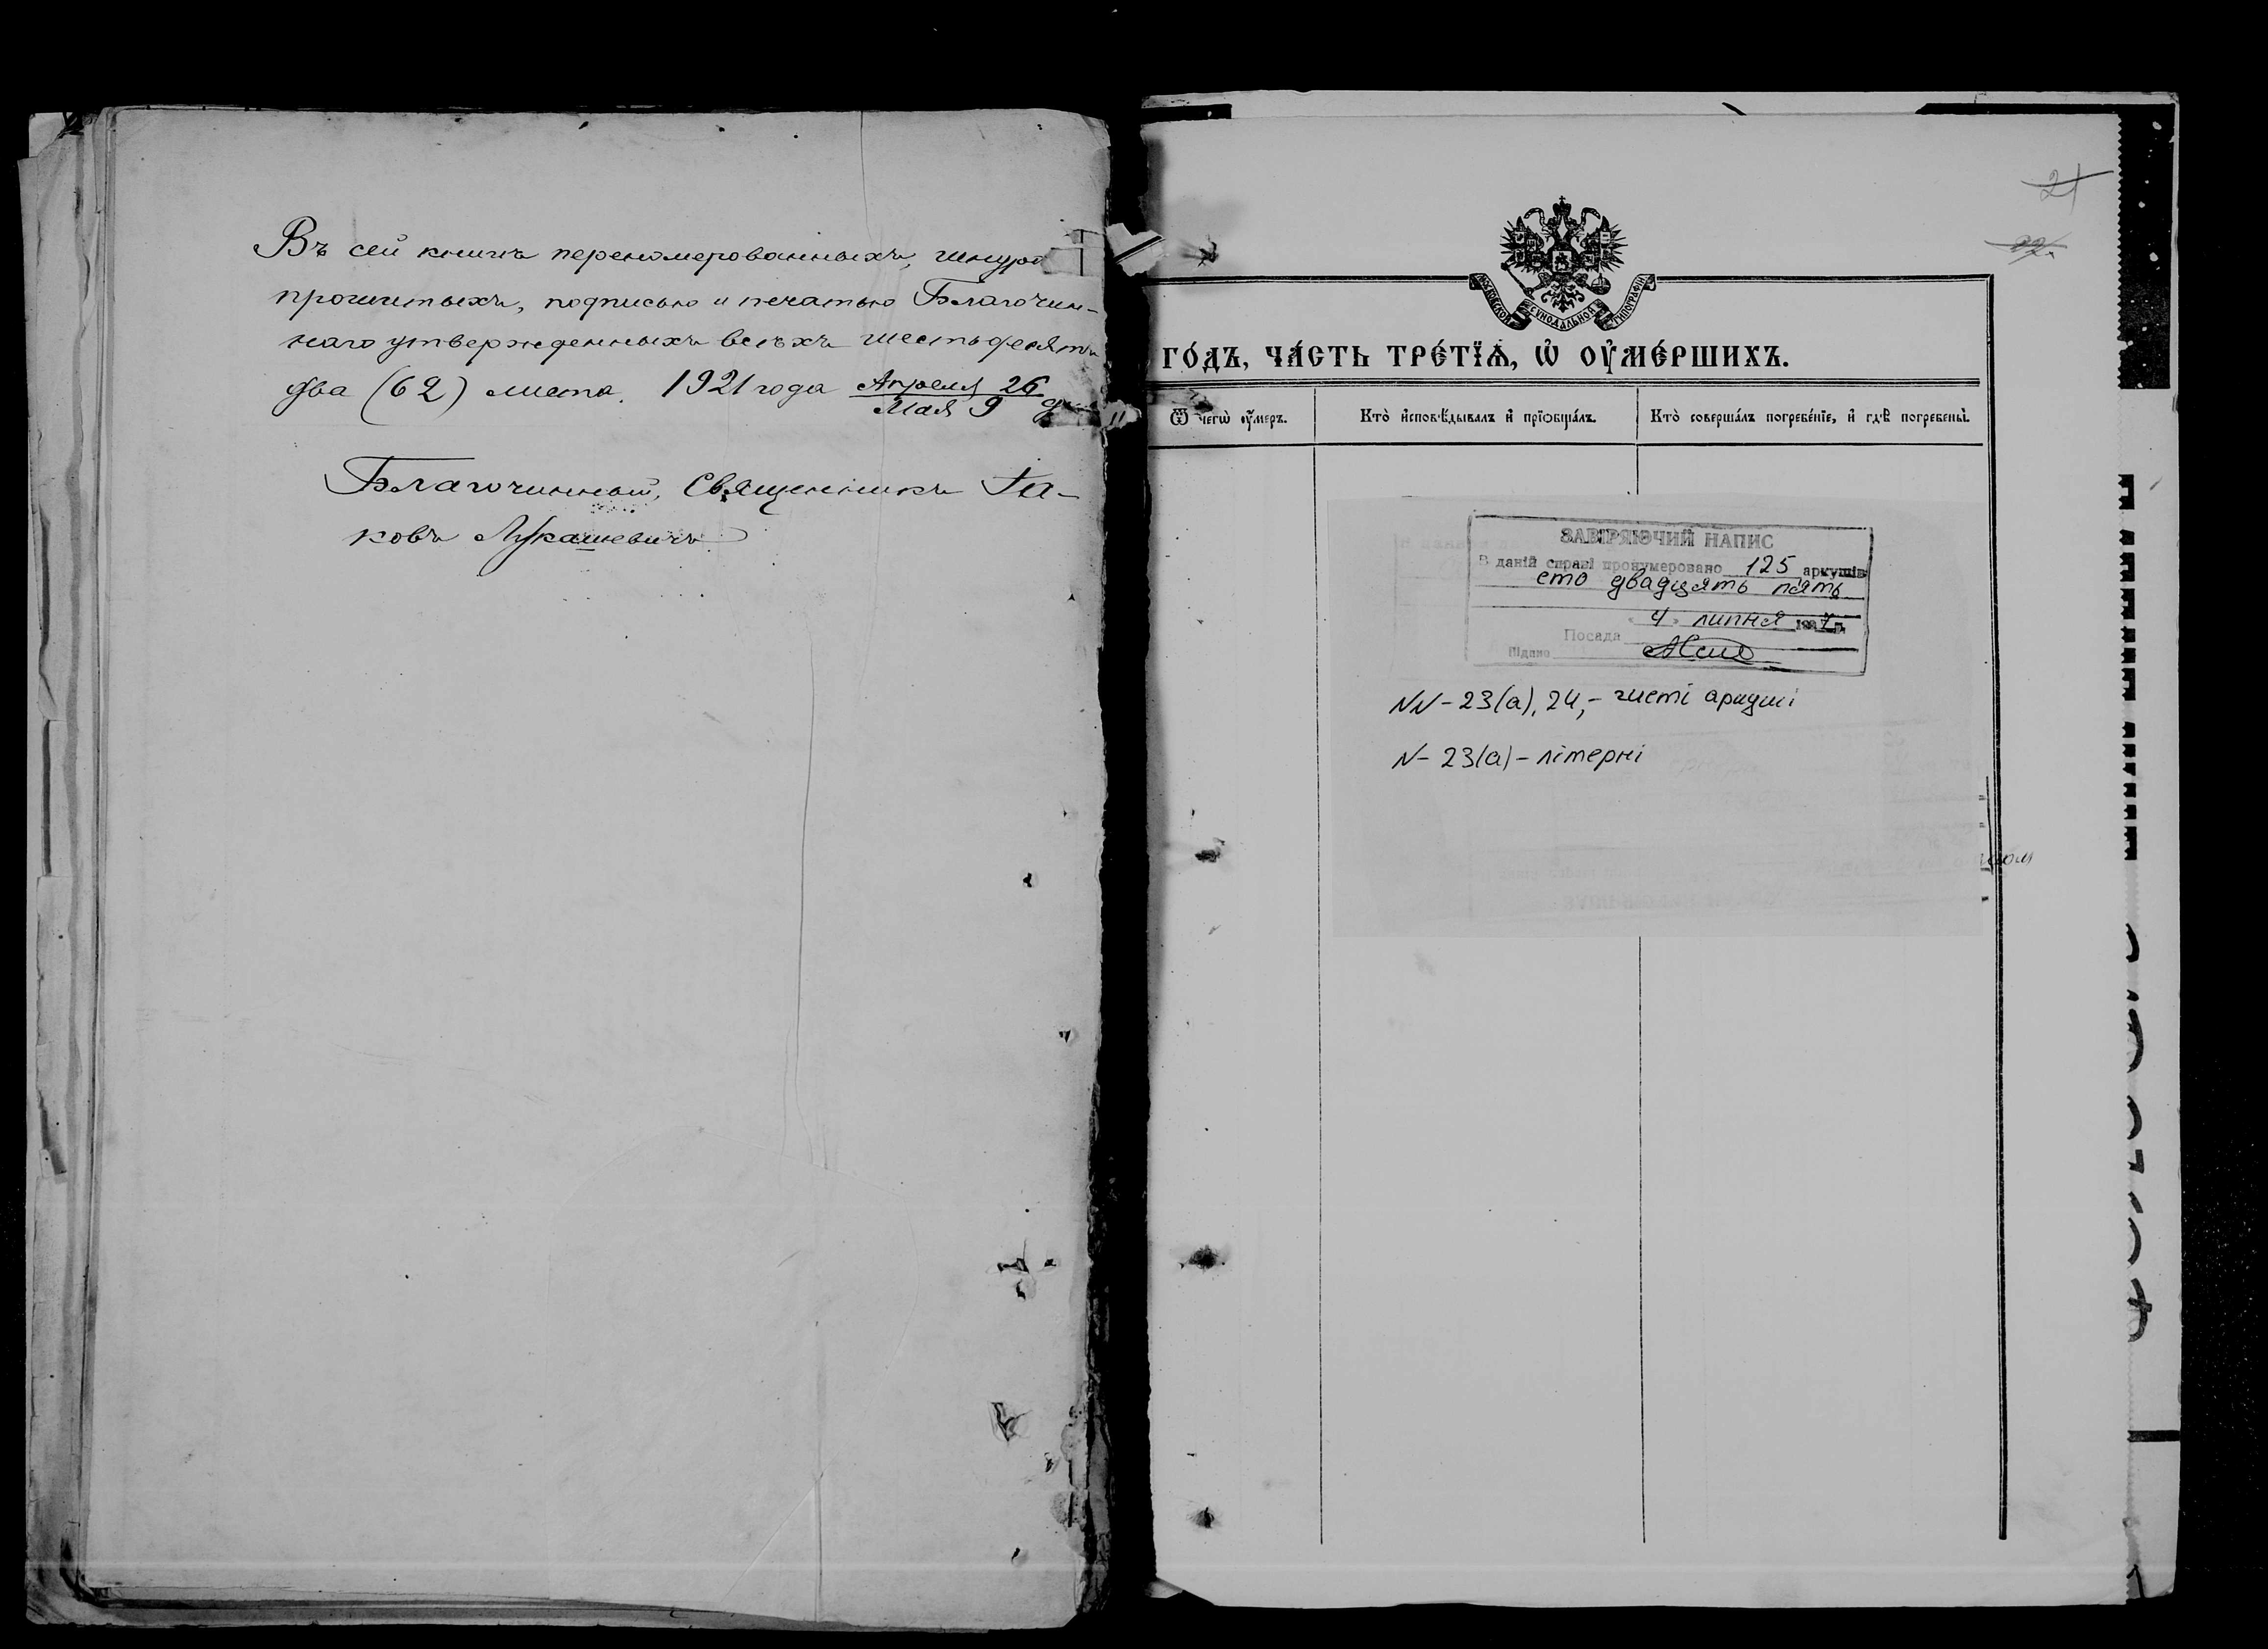 Въ сей книгѣ перенумерованныхъ, шнуро
прошитыхъ, подписью и печатью Благочин-
наго утвержденныхъ всѣхъ шестьдесятъ
два (62) листа. 1921 года Апреля 26
Мая 9 д.
Благочинный, Священникъ Іа-
ковъ Лукашевичъ
21
22.
МОСКОВСКОЙ СѴНОДАЛЬНОЙ ТИПОГРАФІИ
ГО́ДЪ, ЧА́СТЬ ТРЕ́ТЇѦ, Ѡ҆ ОУ҆МЕ́РШИХЪ.
Ѿ чегѡ̀ оу҆́меръ.
Кто̀ и҆сповѣ́дывалъ и҆ прїѡбща́лъ.
Кто̀ соверша́лъ погребе́нїе, и҆ гдѣ̀ погребены̀.
ЗАВІРЯЮЧИЙ НАПИС
В даній справі пронумеровано 125 аркушів
сто двадцять п'ять
4 липня 1997 р.
Посада
Підпис
NN - 23(а), 24, - чисті аркуші
N - 23(а) - літерні